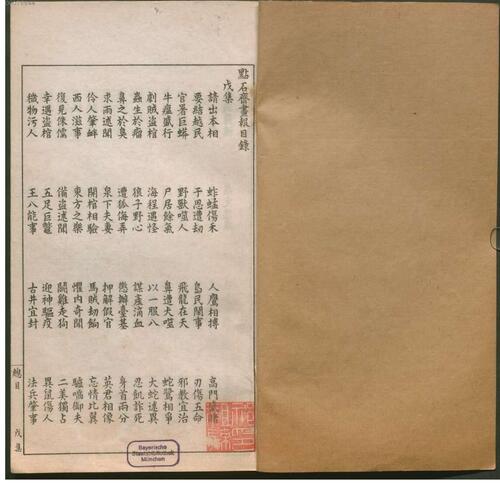 點石齋畫報目錄
戊集
請出本相 蚱蜢傷禾 人鷹相搏 高門
要結越民 于思遭劫 島民鬧事 刃傷五命
官署巨蟒 野獸噬人 飛龍在天 邪教宜治
牛瘟盛行 尸居餘氣 鼻遭犬噬 蛇鷺相爭
劇賊盜棺 海程遇怪 以一服八 大蛇述異
蟲生於瘤 狼子野心 謀產滴血 忍飢詐死
鼻之於臭 遭狐侮弄 懲辦臺基 身首兩分
求雨述聞 泉下夫妻 押解假官 英君相像
伶人肇衅 開棺相驗 馬賊劫餉 忘情比翼
西人滋事 東方之樂 懼內奇聞 驢嘶御夫
復見侏儒 備盜述聞 鬬雞走狗 二美獨占
幸遇盜棺 五足巨鼈 迎神驅疫 異鼠傷人
穢物污人 王八能事 古井宜封 法兵肇事
總目 戊集
Bayerische
Staatsbibliothek
München